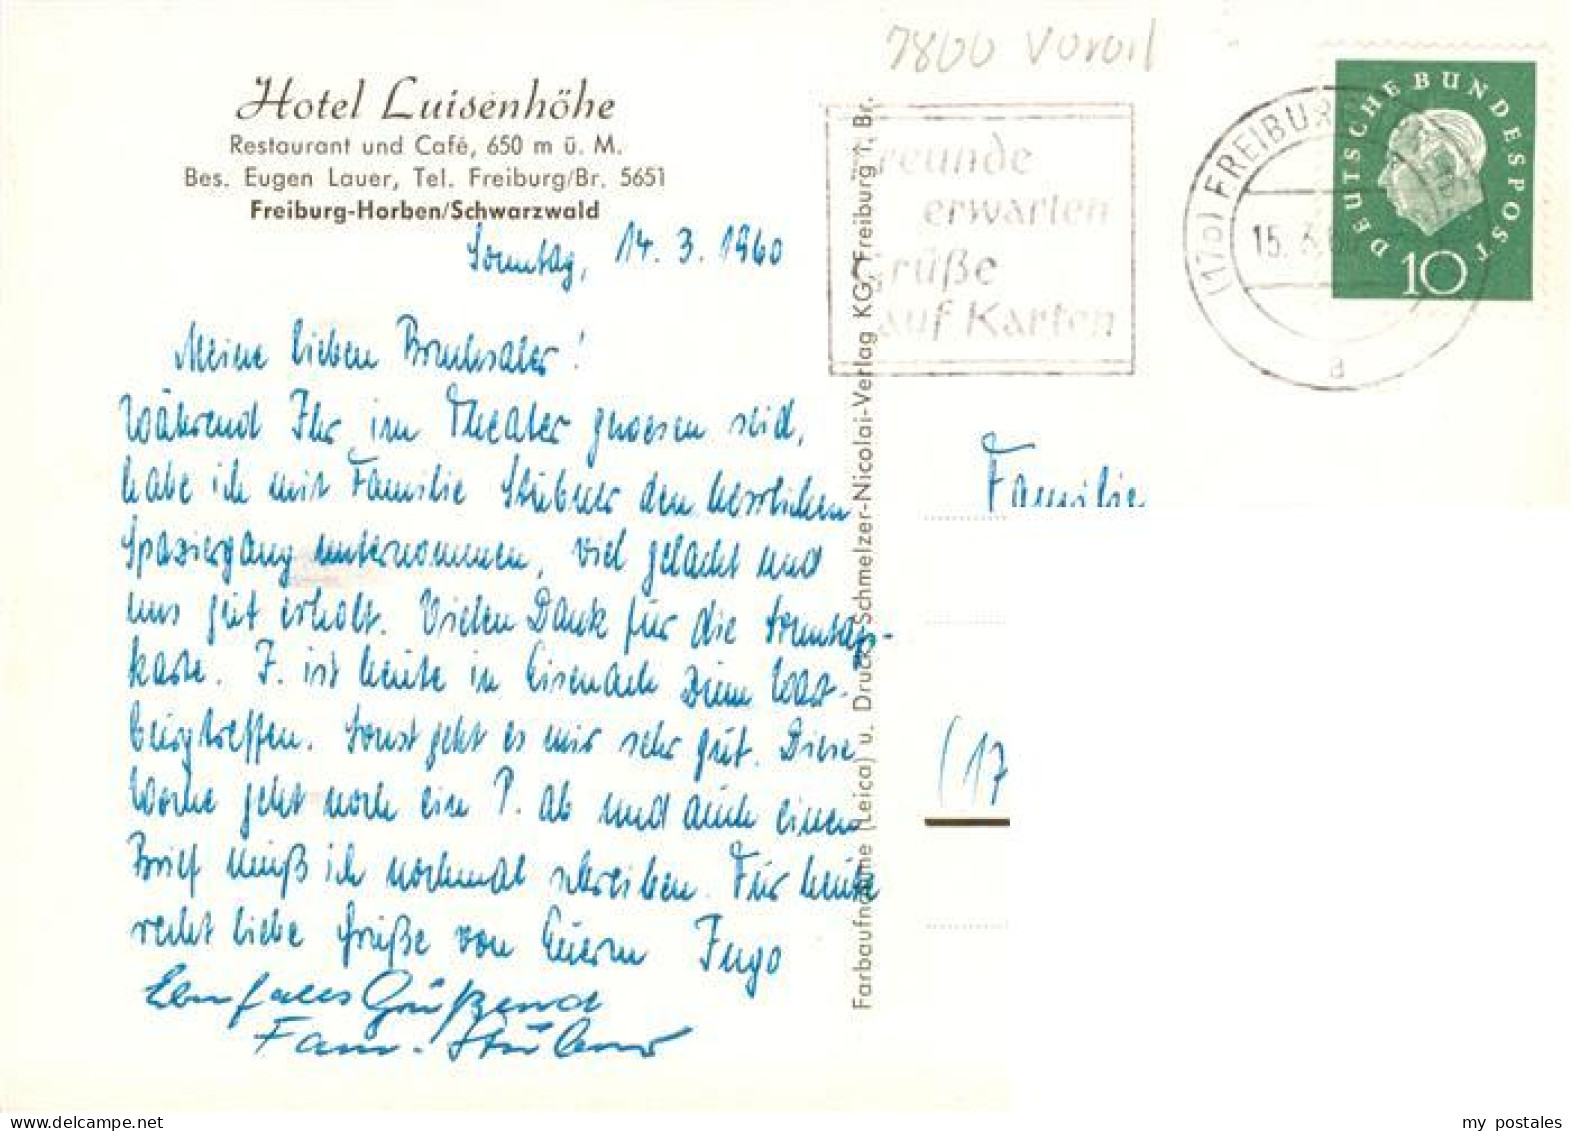 7800
Hotel Luisenhöhe
Restaurant und Café, 650 m ü. M.
Bes. Eugen Lauer, Tel. Freiburg/Br. 5651
Freiburg-Horben/Schwarzwald
Sonntag, 14. 3. 1960
Meine lieben Bruchsaler!
Während Ihr im Theater gewesen seid,
habe ich mit Familie Stübner den herrlichen
Spaziergang unternommen, viel gelacht und
uns gut erholt. Vielen Dank für die Sonntags-
karte. J. ist heute in Eisenach zum Wart-
burgtreffen. Sonst geht es mir sehr gut. Diese
Woche geht noch ein P. ab und auch einen
Brief muß ich nochmal schreiben. Für heute
recht liebe Grüße von Euerm Ingo
Ebenfalls Grüßend
Fam. Stübner
Farbaufnahme (Leica) u. Druck Schmelzer-Nicolai-Verlag KG, Freiburg i. Br.
Freunde
erwarten
Grüße
auf Karten
(17b) FREIBURG
15. 3. 60
a
DEUTSCHE BUNDESPOST
10
Familie
(17
my postales